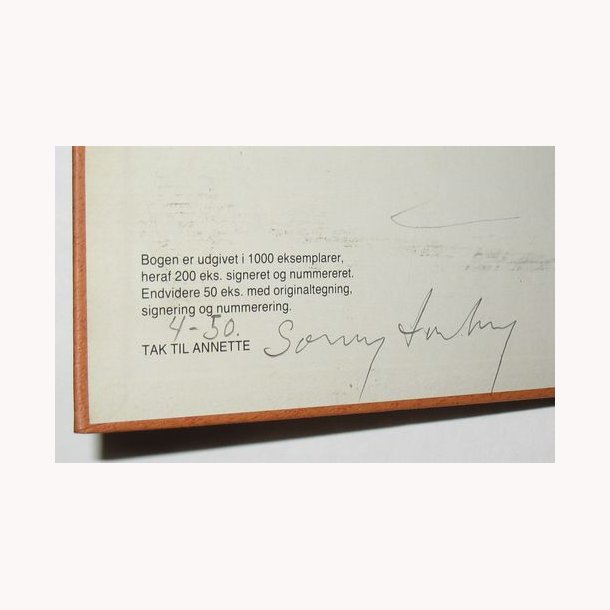 Bogen er udgivet i 1000 eksemplarer,
heraf 200 eks. signeret og nummereret.
Endvidere 50 eks. med originaltegning,
signering og nummerering.
4-50.
TAK TIL ANNETTE Sonny